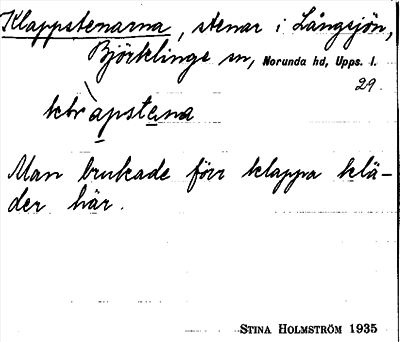 Klappstenarna, stenar i Långsjön,
Björklinge sn, Norunda hd, Upps. l.
29.
Man brukade förr klappa klä-
der här.
STINA HOLMSTRÖM 1935